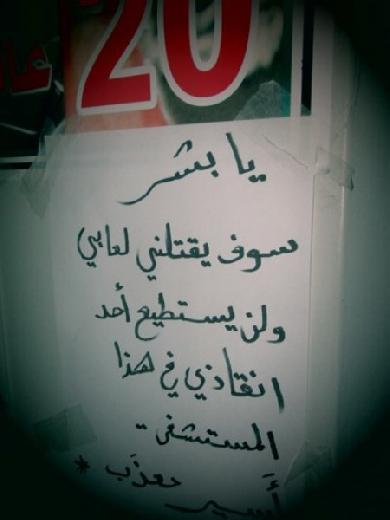 20
يا بشر
سوف يقتلني لعابي
ولن يستطيع أحد
انقاذي في هذا
المستشفى -
أسير معذَب *